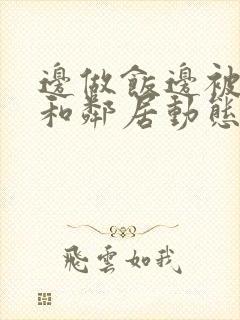 邊做飯邊被
和鄰居動態
飛雲如我